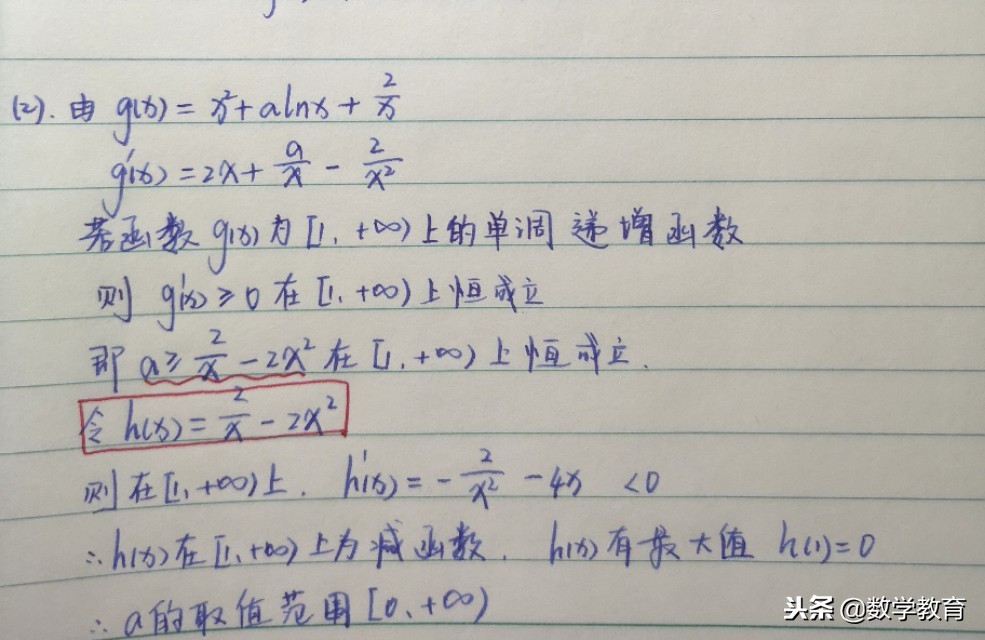 (2). 由 g(x) = x² + alnx + 2/x
g'(x) = 2x + a/x - 2/x²
若函数 g(x) 为 [1, +∞) 上的单调递增函数
则 g'(x) ≥ 0 在 [1, +∞) 上恒成立
即 a ≥ 2/x - 2x² 在 [1, +∞) 上恒成立.
令 h(x) = 2/x - 2x²
则在 [1, +∞) 上. h'(x) = - 2/x² - 4x < 0
∴ h(x) 在 [1, +∞) 上为减函数. h(x) 有最大值 h(1) = 0
∴ a 的取值范围 [0, +∞)
头条 @数学教育